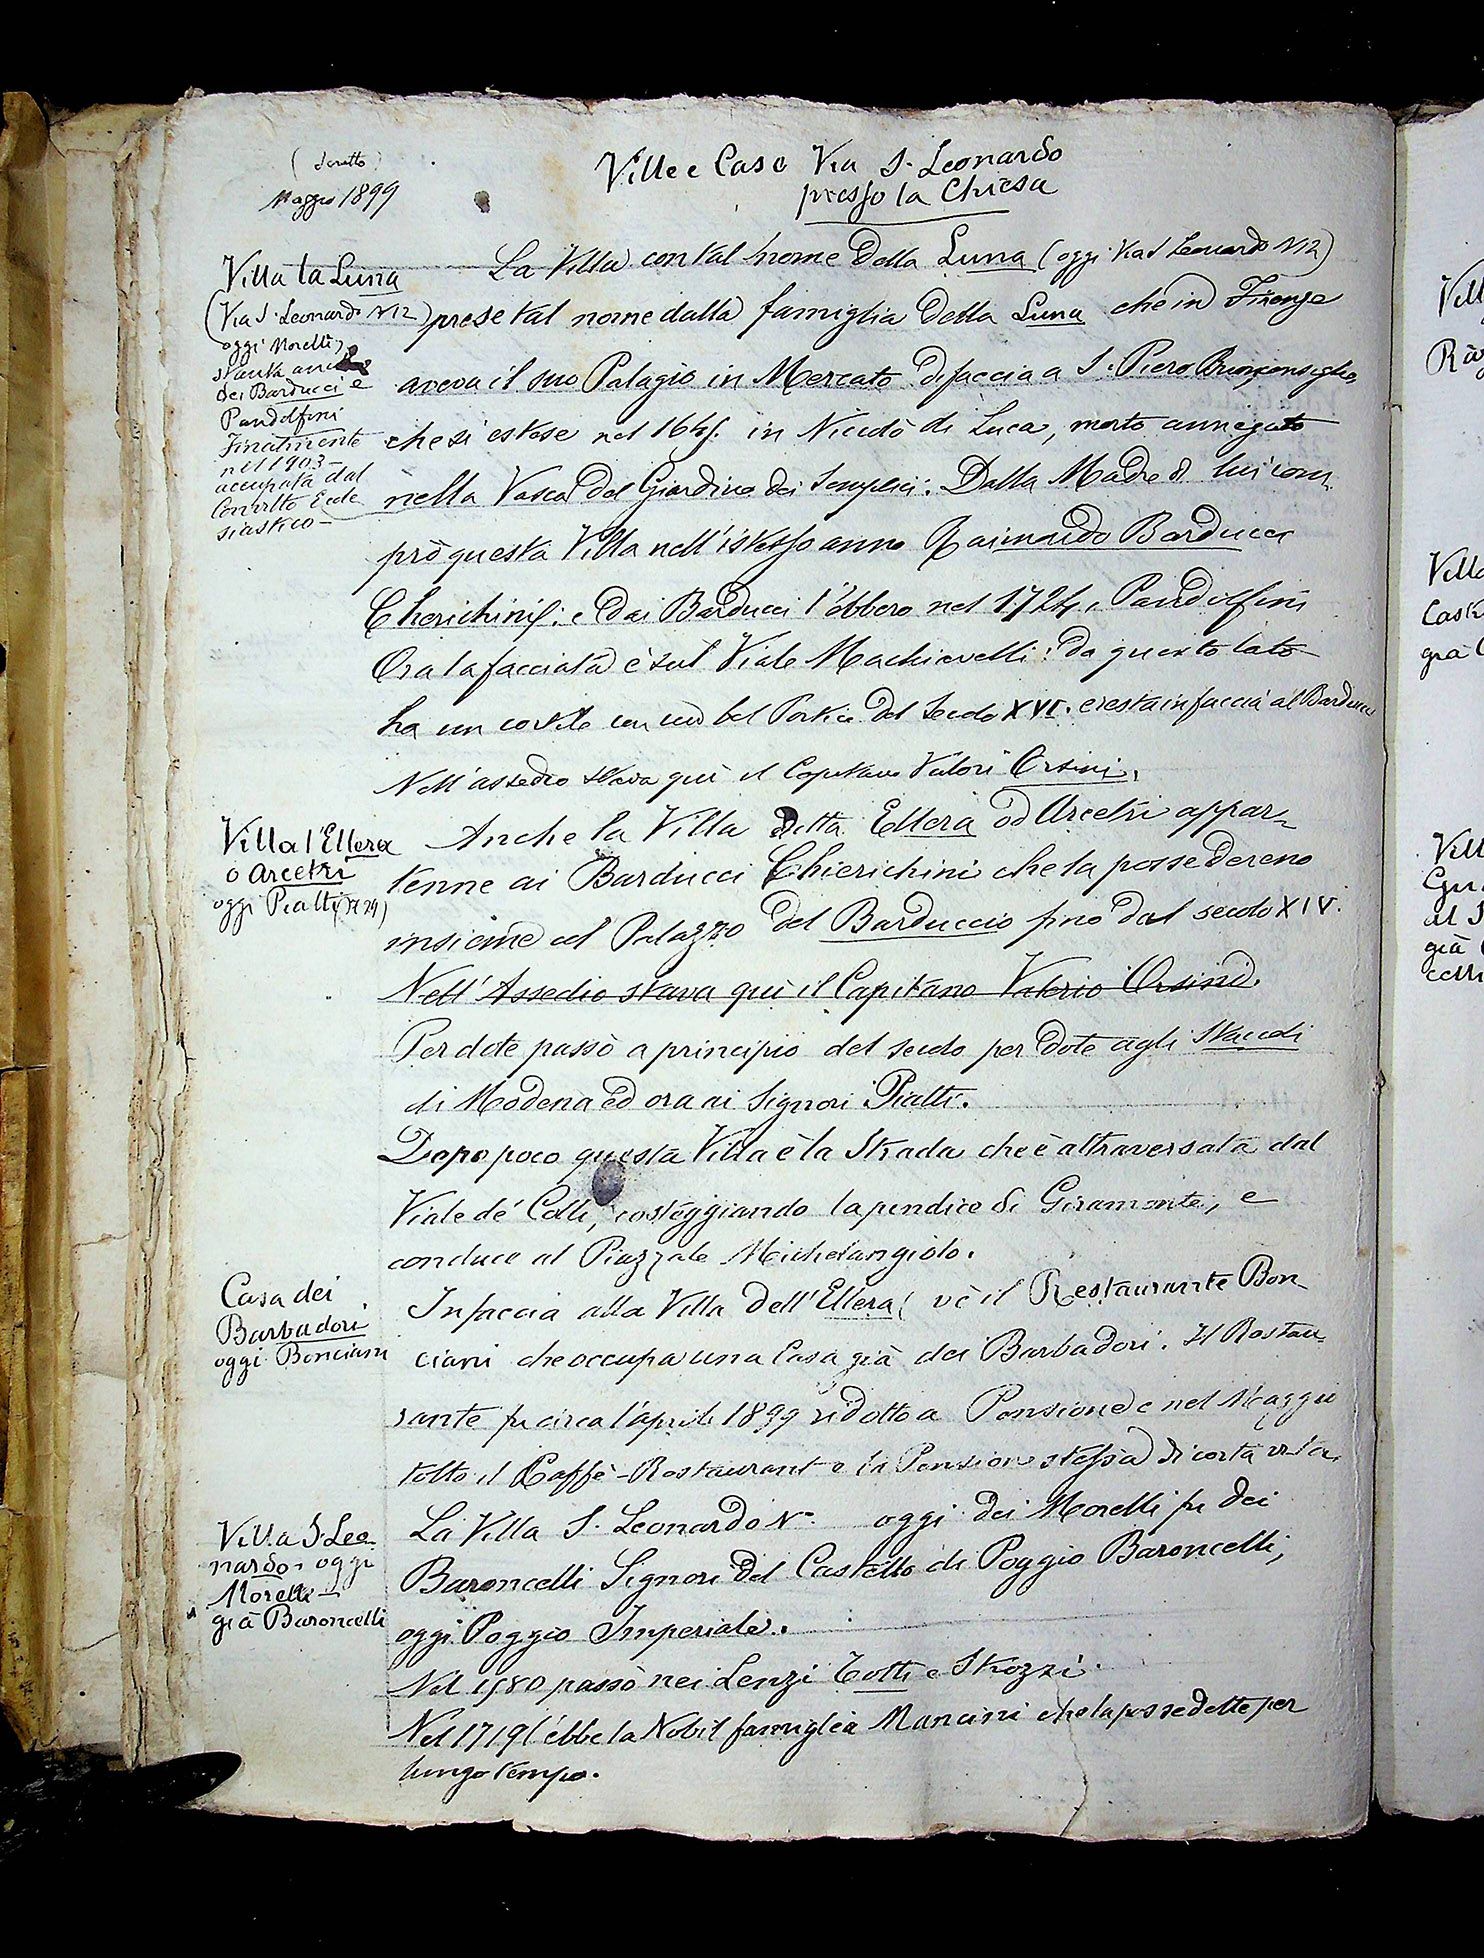 (Scritto)
Maggio 1899
Ville e Case Via S. Leonardo
presso la Chiesa
Villa la Luna
(Via S. Leonardo N 12)
oggi Morelli,
stanza
dei Barducci e
Pandolfini
Finalmente
nel 1903
occupata dal
Convitto Eccle
siastico –
La Villa con tal nome della Luna (oggi Via S Leonardo N12)
prese tal nome dalla famiglia della Luna che in Firenze
aveva il suo Palagio in Mercato di faccia a S. Piero Buonconsiglio,
che si estese nel 1645. in Nicolò di Luca, morto annegato
nella Vasca del Giardino dei Semplici. Dalla Madre di lui com
prò questa Villa nell'istesso anno Raimondo Barducci
Cherichini; e dai Barducci l'ebbero nel 1724 i Pandolfini
Ora la facciata è sul Viale Machiavelli: da questo lato
ha un cortile con un bel Portico del Secolo XVI. e resta in faccia al Barducci
Nell'assedio stava quì il Capitano Valori Orsini.
Villa l'Ellera
o Arcetri
oggi Pialti (N 24)
Anche la Villa detta Ellera od Arcetri appar-
tenne ai Barducci Chierichini che la possedereno
insieme al Palazzo del Barduccio fino dal secolo XIV.
Nell'Assedio stava quì il Capitano Valerio Orsini.
Per dote passò a principio del secolo per dote agli
di Modena ed ora ai Signori Pialti.
Dopo poco questa Villa è la Strada che è attraversata dal
Viale de' Colli, costeggiando la pendice di Giramonte, e
conduce al Piazzale Michelangiolo.
Casa dei
Barbadori
oggi Bonciani
In faccia alla Villa dell'Ellera v'è il Restaurante Bon-
ciani che occupa una Casa già dei Barbadori. Il Restau-
rante fu circa l'aprile 1899 ridotto a Pensione e nel Maggio
tolto il Caffè-Restaurant e la Pensione stessa di corta vita.
Villa S. Leo-
nardo, oggi
Morelli –
già Baroncelli
La Villa S. Leonardo N° oggi dei Morelli fu dei
Baroncelli Signori del Castello di Poggio Baroncelli,
oggi Poggio Imperiale.
Nel 1580 passò nei Lenzi Totti e Strozzi.
Nel 1719 l'ebbe la Nobil famiglia Mancini che la possedette per
lungo tempo.